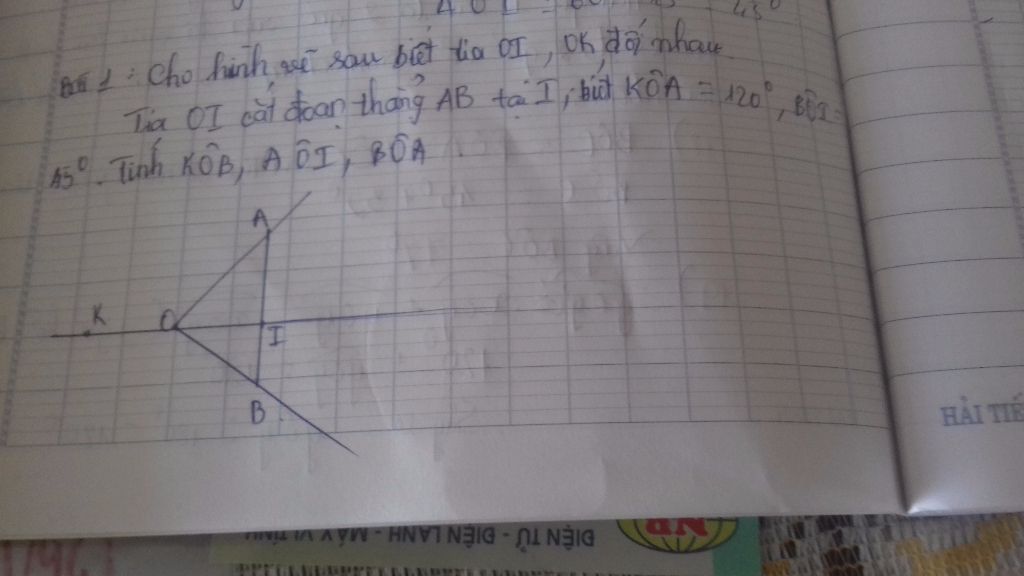 Bài 1: Cho hình vẽ sau biết tia OI, OK đối nhau
Tia OI cắt đoạn thẳng AB tại I, biết KÔA = 120°, BÔI =
45°. Tính KÔB, AÔI, BÔA
A
K
O
I
B
HẢI TIẾ
ĐIỆN TỬ - ĐIỆN LẠNH - MÁY VI TÍNH
NP